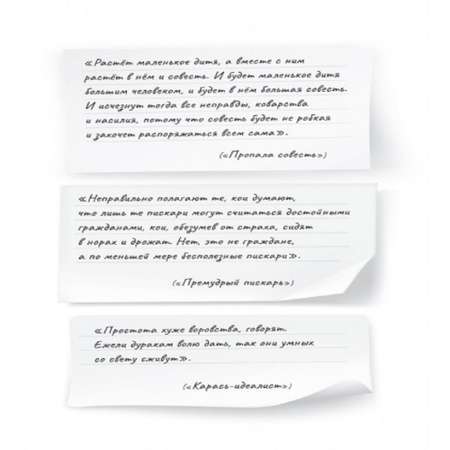 «Растёт маленькое дитя, а вместе с ним
растёт в нём и совесть. И будет маленькое дитя
большим человеком, и будет в нём большая совесть.
И исчезнут тогда все неправды, коварства
и насилия, потому что совесть будет не робкая
и захочет распоряжаться всем сама».
(«Пропала совесть»)
«Неправильно полагают те, кои думают,
что лишь те пискари могут считаться достойными
гражданами, кои, обезумев от страха, сидят
в норах и дрожат. Нет, это не граждане,
а по меньшей мере бесполезные пискари».
(«Премудрый пискарь»)
«Простота хуже воровства, говорят.
Ежели дуракам волю дать, так они умных
со свету сживут».
(«Карась-идеалист»)